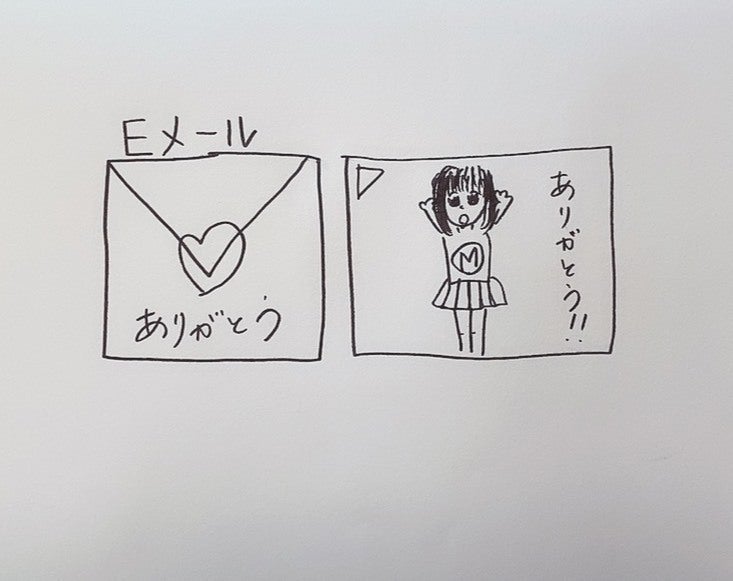 Eメール
ありがとう
M
ありがとう!!